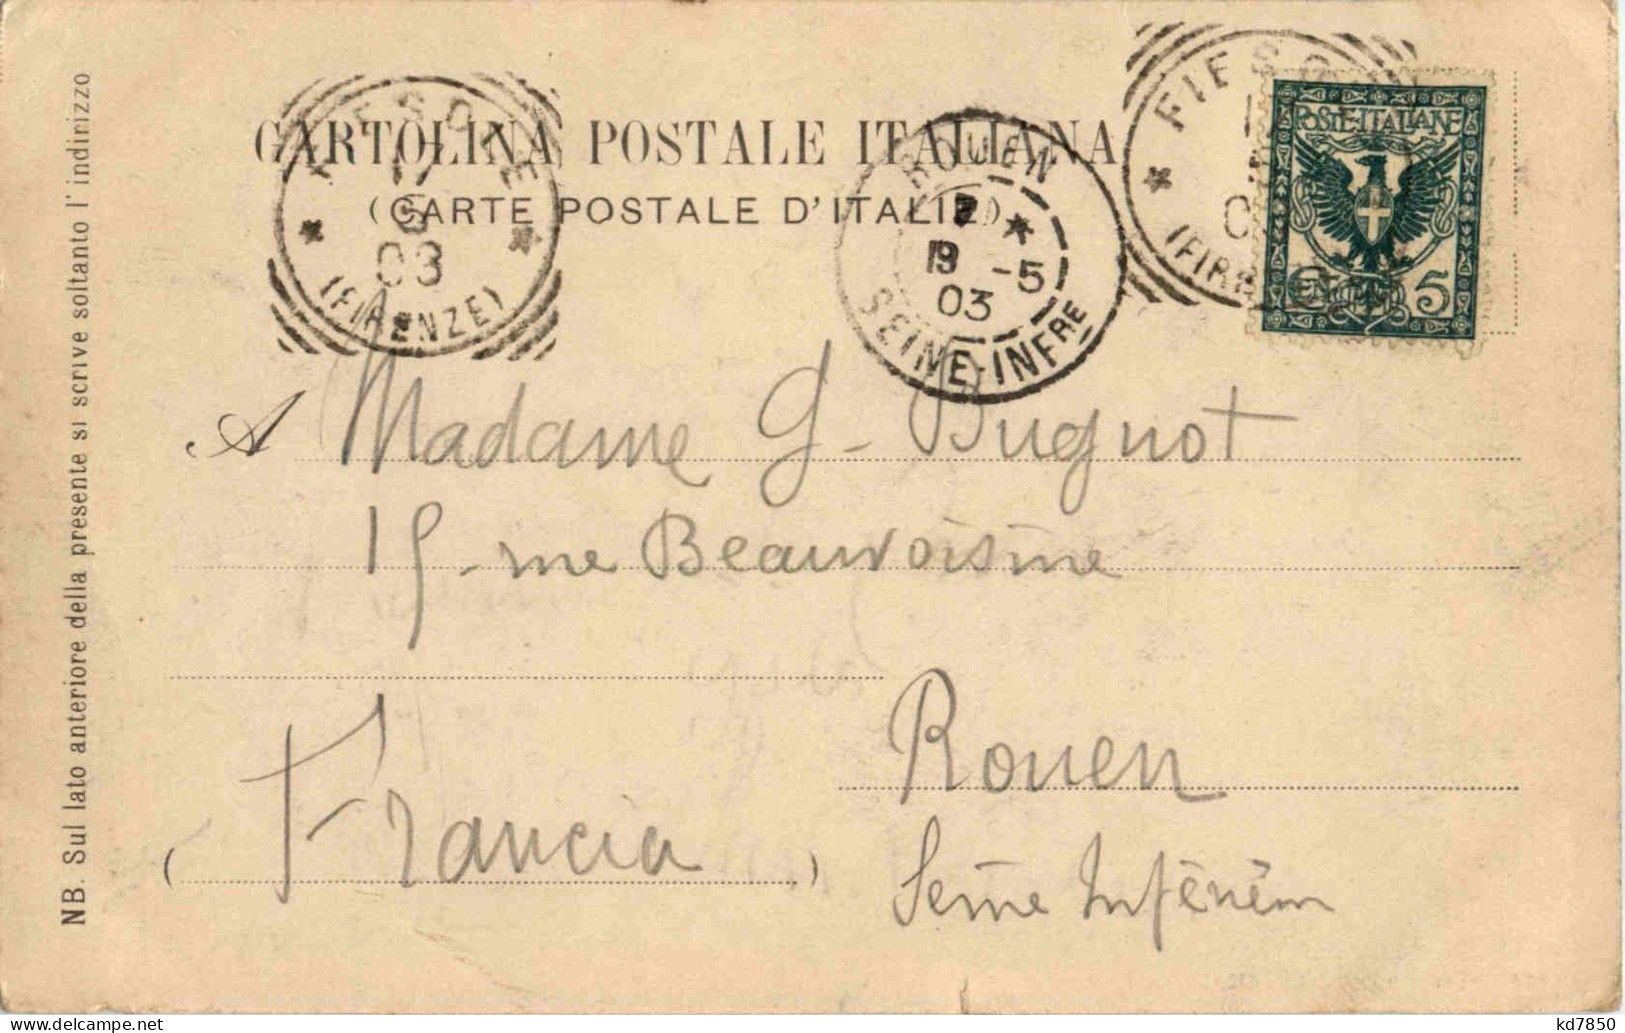 CARTOLINA POSTALE ITALIANA
(CARTE POSTALE D'ITALIE)
FIESOLE
17
5
03
(FIRENZE)
ROUEN
19 -5
03
SEINE-INFRE
FIESO
(FIRE
POSTE·ITALIANE
CENTESIMI 5
A Madame G. Bugnot
15 rue Beauvoisine
Rouen
(Francia)
Seine Inférieure
NB. Sul lato anteriore della presente si scrive soltanto l'indirizzo
kd7850